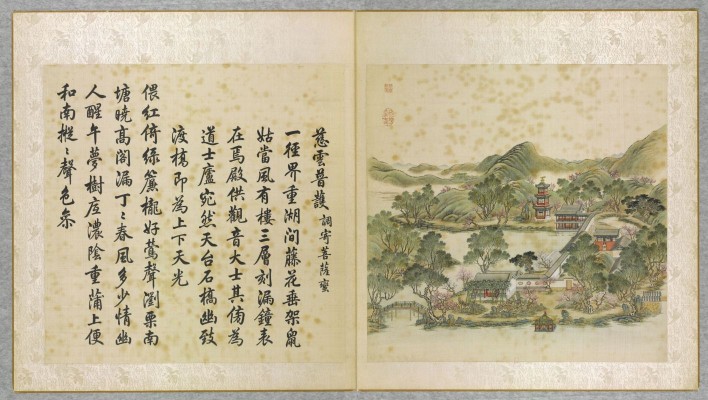 慈雲普護 調寄菩薩蠻
一徑界重湖間藤花垂架鼠
姑當風有樓三層刻漏鐘表
在焉殿供觀音大士其傍為
道士廬宛然天台石橋幽致
渡橋即為上下天光
偎紅倚綠簾櫳好鶯聲瀏栗南
塘曉高閣漏丁丶春風多少情幽
人醒午夢樹底濃陰重蒲上便
和南樅丶聲色參